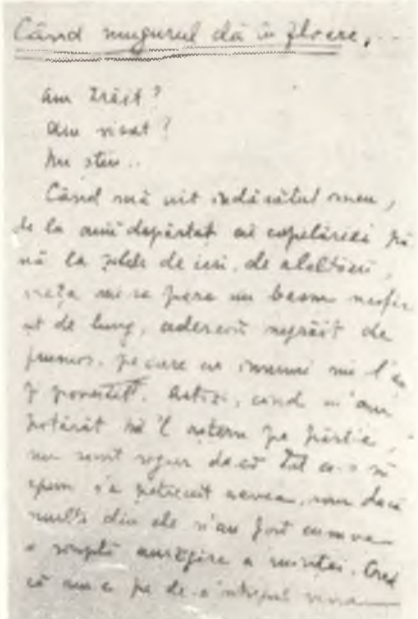 Când mugurul dă în floare,...
Am trăit?
Am visat?
Nu știu..
Când mă uit îndărătul meu,
de la anii depărtați ai copilăriei pâ
nă la zilele de ieri, de alaltăieri,
viața mi se pare un basm nesfîr
it de lung, adeseori negrăit de
frumos, pe care cu mi l'a
povestit. Astăzi, când m'am
hotărât să'l aștern pe hârtie,
nu sunt sigur dacă tot ce-o să
spun s'a petrecut aevea, sau dacă
multe din ele n'au fost cumva
o simplă amăgire a minții. Cred
că nu e pe de-a'ntregul vina